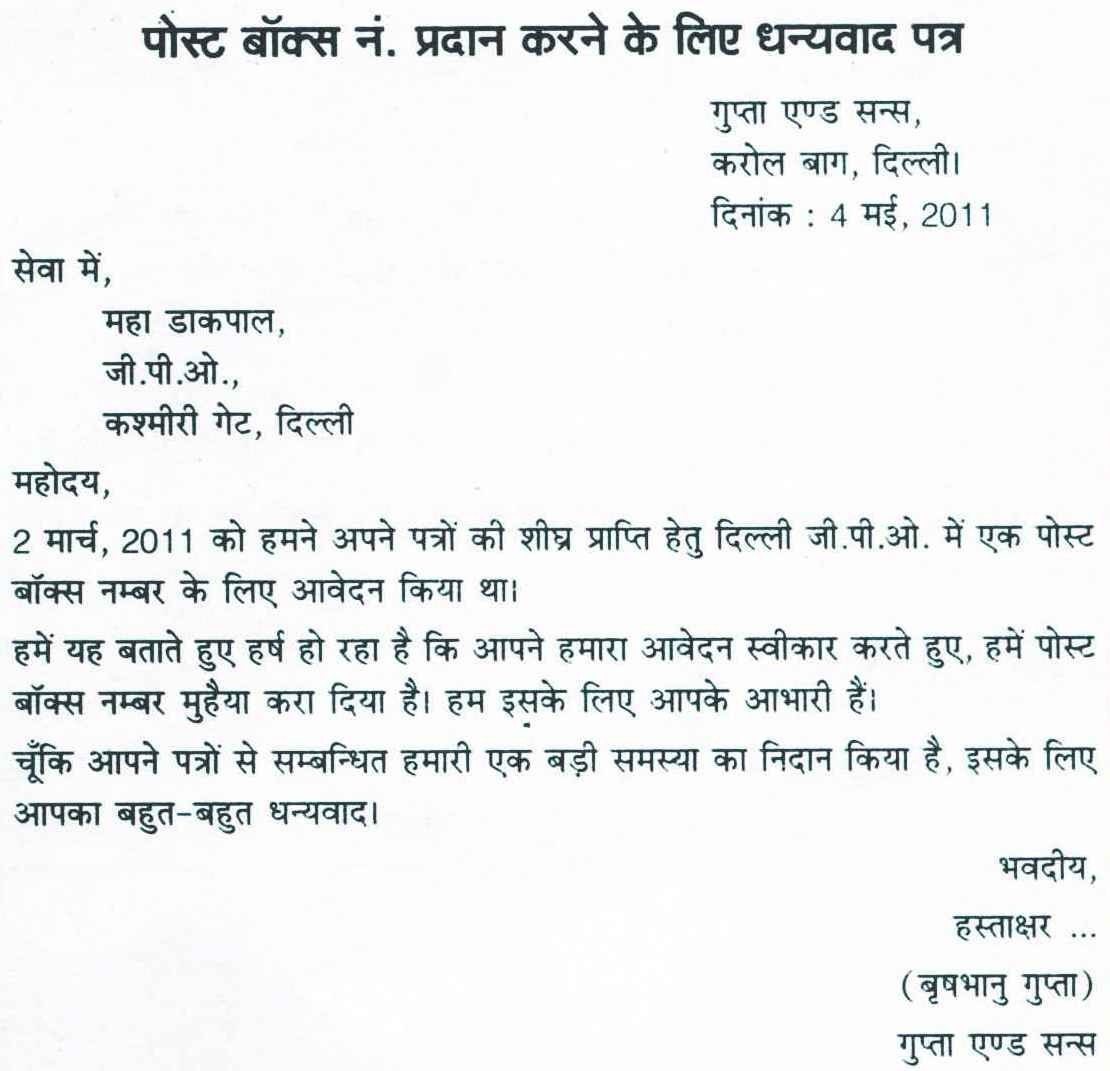 पोस्ट बॉक्स नं. प्रदान करने के लिए धन्यवाद पत्र
गुप्ता एण्ड सन्स,
करोल बाग, दिल्ली।
दिनांक : 4 मई, 2011
सेवा में,
महा डाकपाल,
जी.पी.ओ.,
कश्मीरी गेट, दिल्ली
महोदय,
2 मार्च, 2011 को हमने अपने पत्रों की शीघ्र प्राप्ति हेतु दिल्ली जी.पी.ओ. में एक पोस्ट
बॉक्स नम्बर के लिए आवेदन किया था।
हमें यह बताते हुए हर्ष हो रहा है कि आपने हमारा आवेदन स्वीकार करते हुए, हमें पोस्ट
बॉक्स नम्बर मुहैया करा दिया है। हम इसके लिए आपके आभारी हैं।
चूँकि आपने पत्रों से सम्बन्धित हमारी एक बड़ी समस्या का निदान किया है, इसके लिए
आपका बहुत-बहुत धन्यवाद।
भवदीय,
हस्ताक्षर ...
(बृषभानु गुप्ता)
गुप्ता एण्ड सन्स